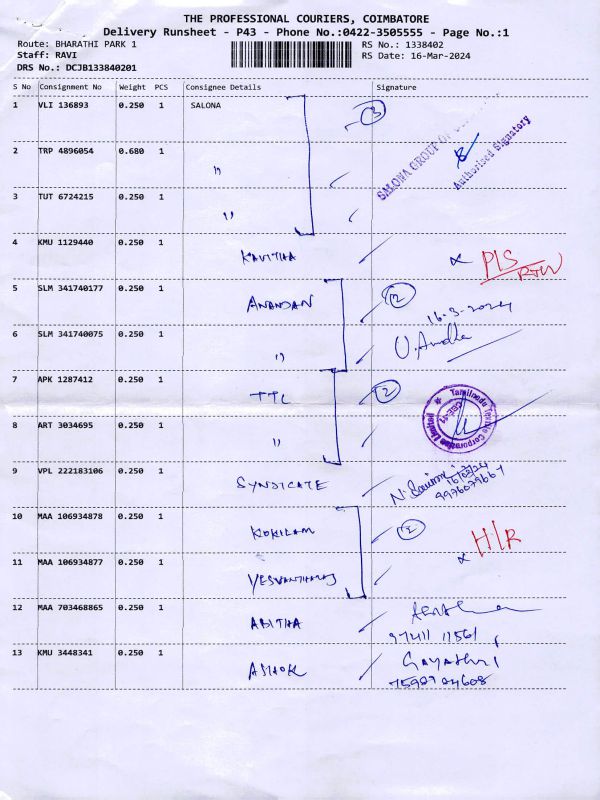 THE PROFESSIONAL COURIERS, COIMBATORE
Delivery Runsheet - P43 - Phone No.:0422-3505555 - Page No.:1
Route: BHARATHI PARK 1 RS No.: 1338402
Staff: RAVI RS Date: 16-Mar-2024
DRS No.: DCJB133840201
S No Consignment No Weight PCS Consignee Details Signature
1 VLI 136893 0.250 1 SALONA 3
SALONA GROUP OF
Authorised Signatory
2 TRP 4896054 0.680 1 "
3 TUT 6724215 0.250 1 "
4 KMU 1129440 0.250 1 KAVITHA PLS
5 SLM 341740177 0.250 1 ANANDAN 2
16-3-2024
6 SLM 341740075 0.250 1 "
7 APK 1287412 0.250 1 TTC 2
Tamilnadu Textile Corporation Limited
8 ART 3034695 0.250 1 "
9 VPL 222183106 0.250 1 SYNDICATE
16/03/24
10 MAA 106934878 0.250 1 KOKILAM 2
H/R
11 MAA 106934877 0.250 1 YESVANTHRAJ
12 MAA 703468865 0.250 1 ABITHA
97411 11561
13 KMU 3448341 0.250 1 ASHOK Gayathri